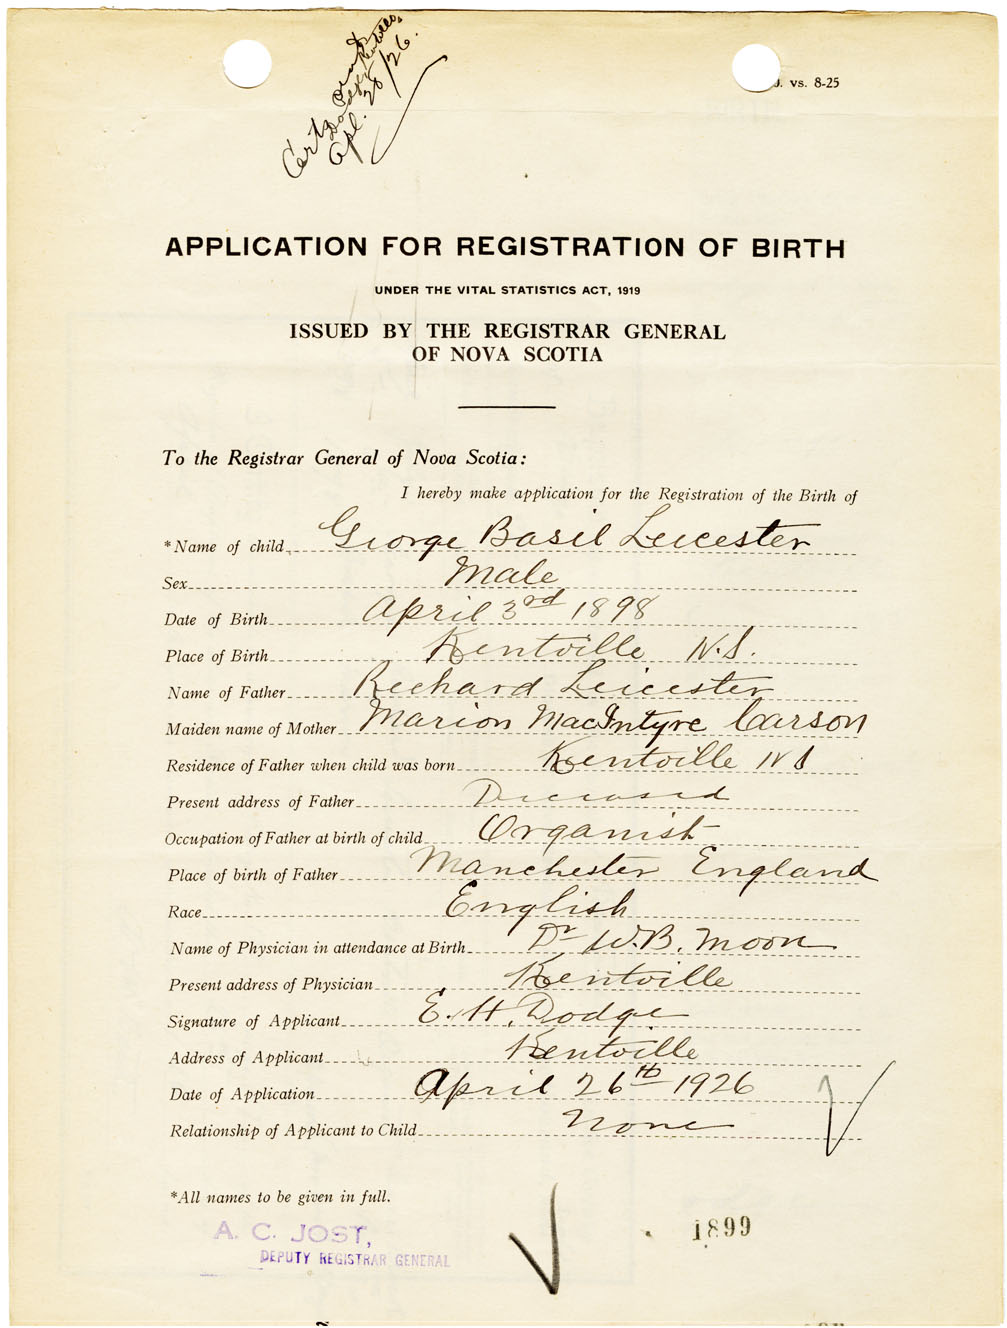 Cert
Apl. 28/26.
vs. 8-25
APPLICATION FOR REGISTRATION OF BIRTH
UNDER THE VITAL STATISTICS ACT, 1919
ISSUED BY THE REGISTRAR GENERAL
OF NOVA SCOTIA
To the Registrar General of Nova Scotia:
I hereby make application for the Registration of the Birth of
*Name of child George Basil Leicester
Sex Male
Date of Birth April 3rd 1898
Place of Birth Kentville N.S.
Name of Father Richard Leicester
Maiden name of Mother Marion MacIntyre Carson
Residence of Father when child was born Kentville NS
Present address of Father Deceased
Occupation of Father at birth of child Organist
Place of birth of Father Manchester England
Race English
Name of Physician in attendance at Birth Dr W.B. Moon
Present address of Physician Kentville
Signature of Applicant E. H. Dodge
Address of Applicant Kentville
Date of Application April 26th 1926
Relationship of Applicant to Child None
*All names to be given in full.
A. C. JOST,
DEPUTY REGISTRAR GENERAL
1899